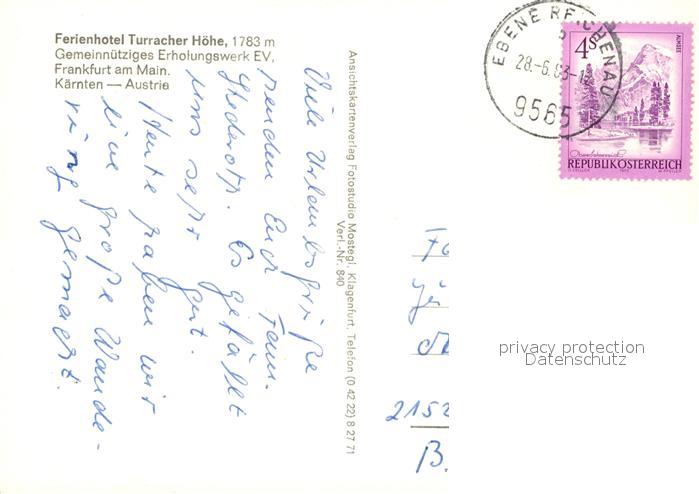 Ferienhotel Turracher Höhe, 1783 m
Gemeinnütziges Erholungswerk EV,
Frankfurt am Main.
Kärnten — Austria
Viele Urlaubsgrüße
senden Euch Fam.
Es gefällt
uns sehr gut.
Heute haben wir
eine große Wande-
rung gemacht.
Ansichtskartenverlag Fotostudio Mostegl, Klagenfurt, Telefon (0 42 22) 8 27 71
Verl.-Nr. 840
EBENE REICHENAU
28.-6.83-1
9565
4 S
ALMSEE
Oberösterreich
REPUBLIK ÖSTERREICH
2152
B.
privacy protection
Datenschutz